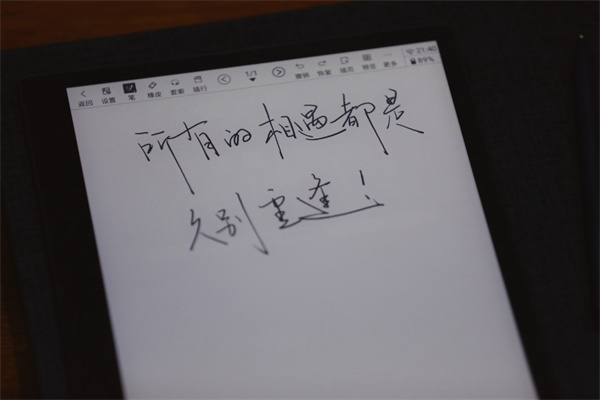 返回 设置 笔 橡皮 套索 插行 1/1 撤销 恢复 插页 预览 更多 21:40 89%
所有的相遇都是
久别重逢！